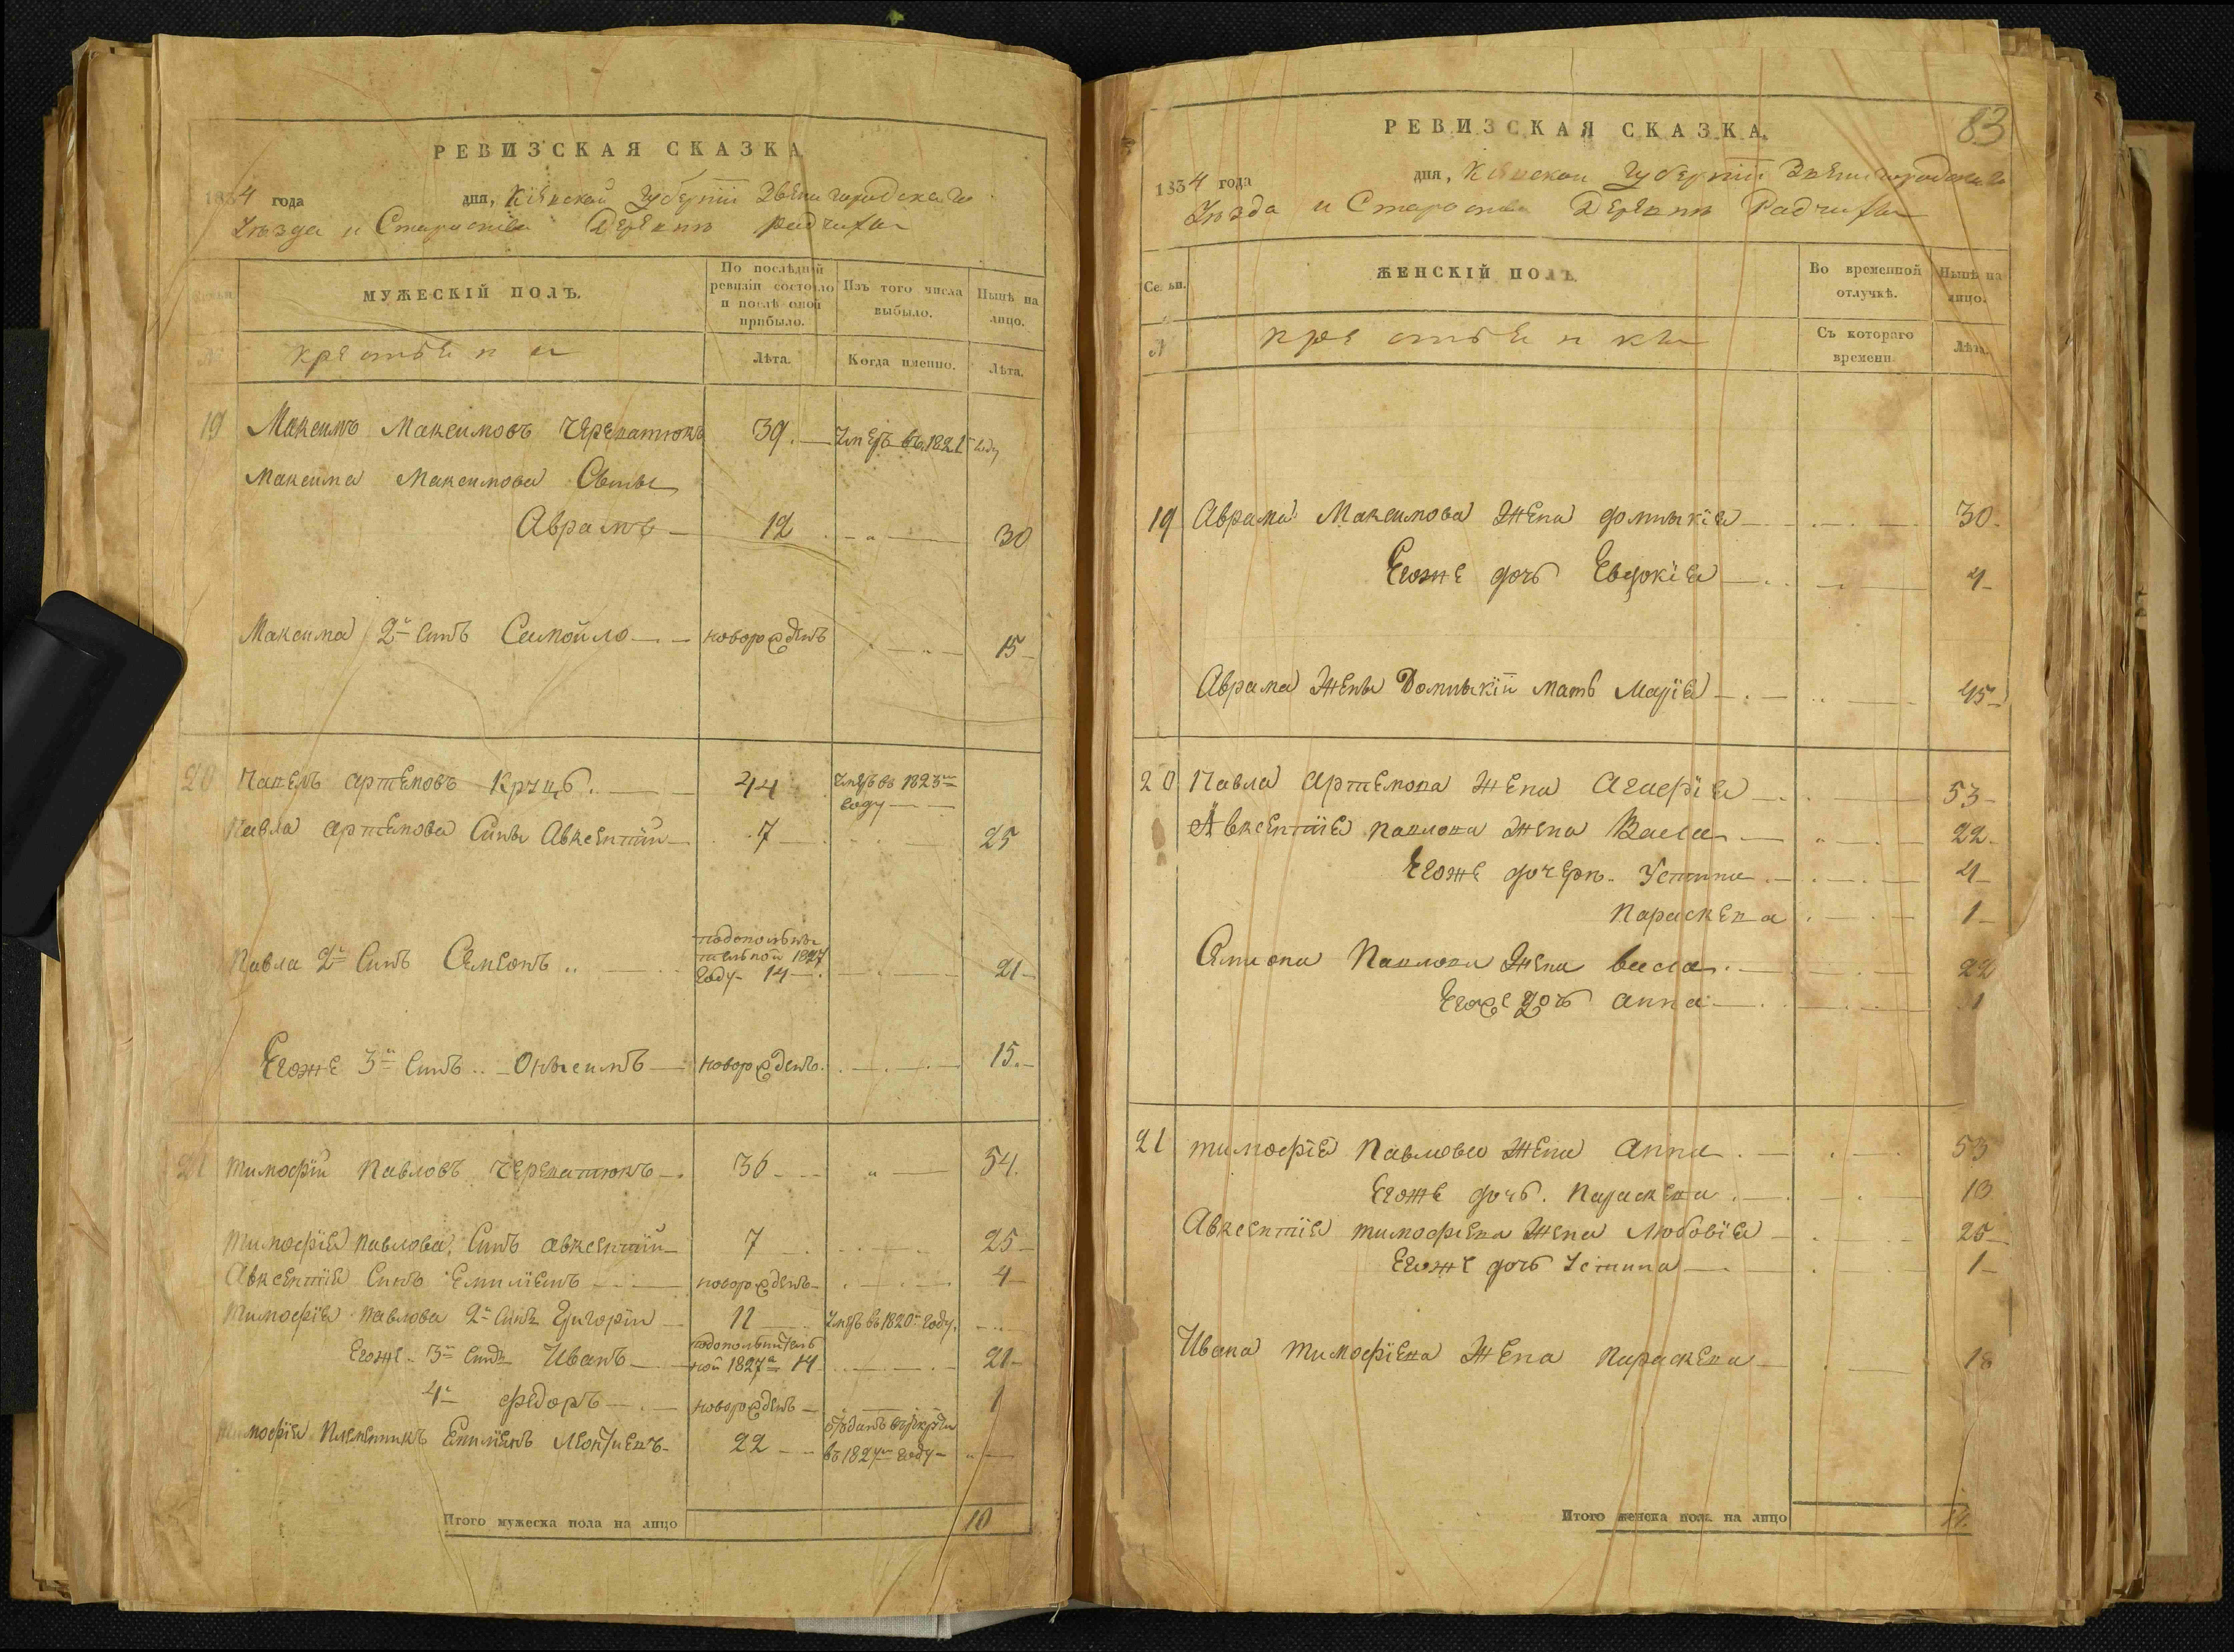 РЕВИЗСКАЯ СКАЗКА
1834 года дня, Кіевской Губерніи Звенигородскаго
Уѣзда и Староства Деревни Радчихи
Семьи.
МУЖЕСКІЙ ПОЛЪ.
По послѣдней ревизіи состояло и послѣ оной прибыло.
Изъ того числа выбыло.
Нынѣ на лицо.
№
Лѣта.
Когда именно.
Лѣта.
19 Максимъ Максимовъ Череватюкъ 39. Умеръ въ 1821 году
Максима Максимова Сыны
Аврамъ 12 30
Максима 2й Сынъ Самойло новорожденъ 15
20 Павелъ Артемовъ Круць 44 Умеръ въ 1823м
году
Павла Артемова Сыны Авксентій 7 25
Павла 2й Сынъ Семіонъ 1827
году 14 21
Егоже 3й Сынъ Онысимъ новорожденъ 15.
21 Тимофій Павловъ Череватюкъ 36 54.
Тимофіа Павлова Сынъ Авксентій 7 25
Авксентіа Сынъ Емиліянъ новорожденъ 4
Тимофіа Павлова 2й Сынъ Григорій 11 Умеръ въ 1820м году
Егоже 3й Сынъ Иванъ ной 1827а 14 21
4й Федоръ новорожденъ 1
Тимофіа Племенникъ Емиліянъ 22 отданъ въ рекруты
въ 1824м году
Итого мужеска пола на лицо 10
83
РЕВИЗСКАЯ СКАЗКА.
1834 года дня, Кіевской Губерніи Звенигородскаго
Уѣзда и Староства Деревни Радчихи
Семьи.
ЖЕНСКІЙ ПОЛЪ.
Во временной отлучкѣ.
Нынѣ на лицо.
№
Съ котораго времени.
Лѣта.
19 Аврама Максимова Жена Домныкіа 30.
Егоже дочь Евдокіа 4
Аврама Жены Домныкіи мать Маріа 45
20 Павла Артемова Жена Агафіа 53
Авксентіа Павлова Жена Васса 22.
Егоже дочери Устина 4
Параскева 1
Семиона Павлова Жена Васса 22
Егоже дочь Анна 1
21 Тимофіа Павлова Жена Анна 53
Егоже дочь Параскева 13
Авксентіа Тимофіева Жена Любовіа 25
Егоже дочь Устина 1
Ивана Тимофіева Жена Параскева 18
Итого женска пола на лицо